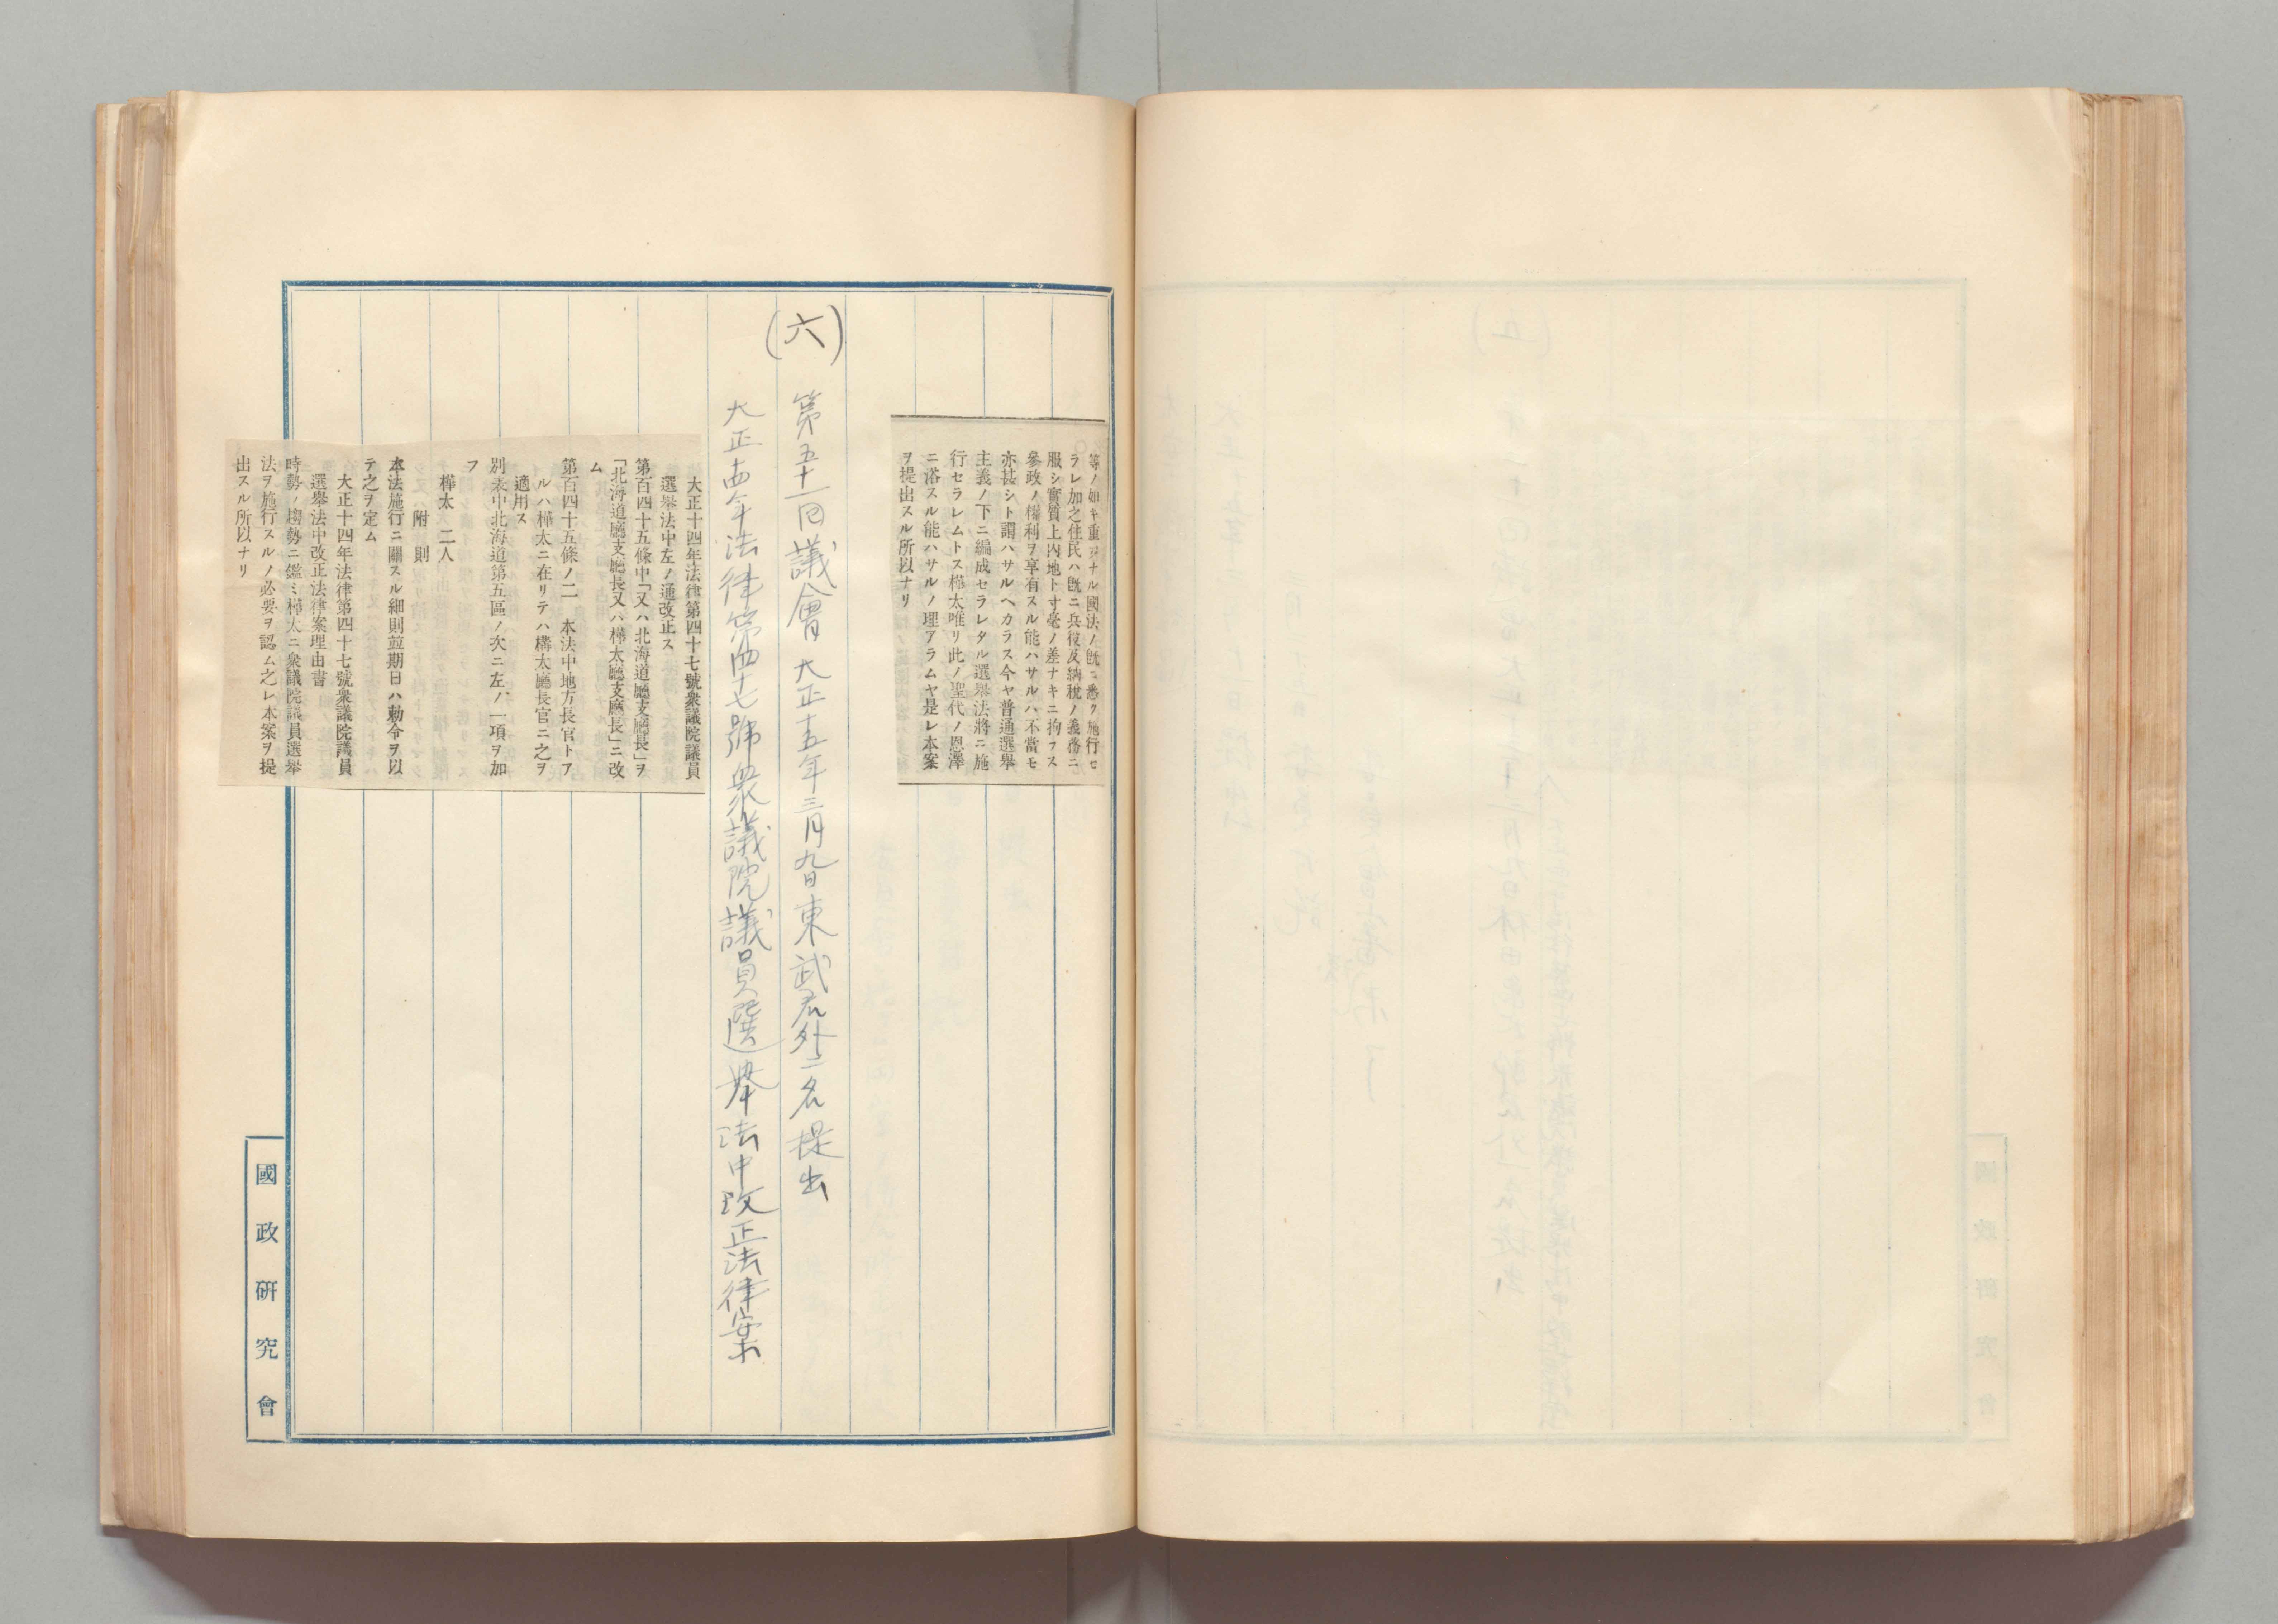 等ノ如キ重ヲナル國法ノ既ニ悉ク施行セ
ラレ加之住民ハ既ニ兵役及納稅ノ義務ニ
服シ實質上內地ト寸毫ノ差ナキニ拘ラス
參政ノ權利ヲ享有スル能ハサルハ不當モ
亦甚シト謂ハサルヘカラス今ヤ普通選擧
主義ノ下ニ編成セラレタル選擧法將ニ施
行セラレムトス樺太唯リ此ノ聖代ノ恩澤
ニ浴スル能ハサルノ理アラムヤ是レ本案
ヲ提出スル所以ナリ
(六)
第五十一回議會 大正十五年三月九日東武君外二名提出
大正十四年法律第四十七號衆議院議員選擧法中改正法律案
大正十四年法律第四十七號衆議院議員
選擧法中左ノ通改正ス
第百四十五條中「又ハ北海道廳支廳長」ヲ
「北海道廳支廳長又ハ樺太廳支廳長」ニ改
ム
第百四十五條ノ二 本法中地方長官トア
ルハ樺太ニ在リテハ樺太廳長官ニ之ヲ
適用ス
別表中北海道第五區ノ次ニ左ノ一項ヲ加
フ
樺太 二人
附則
本法施行ニ關スル細則竝期日ハ勅令ヲ以
テ之ヲ定ム
大正十四年法律第四十七號衆議院議員
選擧法中改正法律案理由書
時勢ノ趨勢ニ鑑ミ樺太ニ衆議院議員選擧
法ヲ施行スルノ必要ヲ認ム之レ本案ヲ提
出スル所以ナリ
國政硏究會